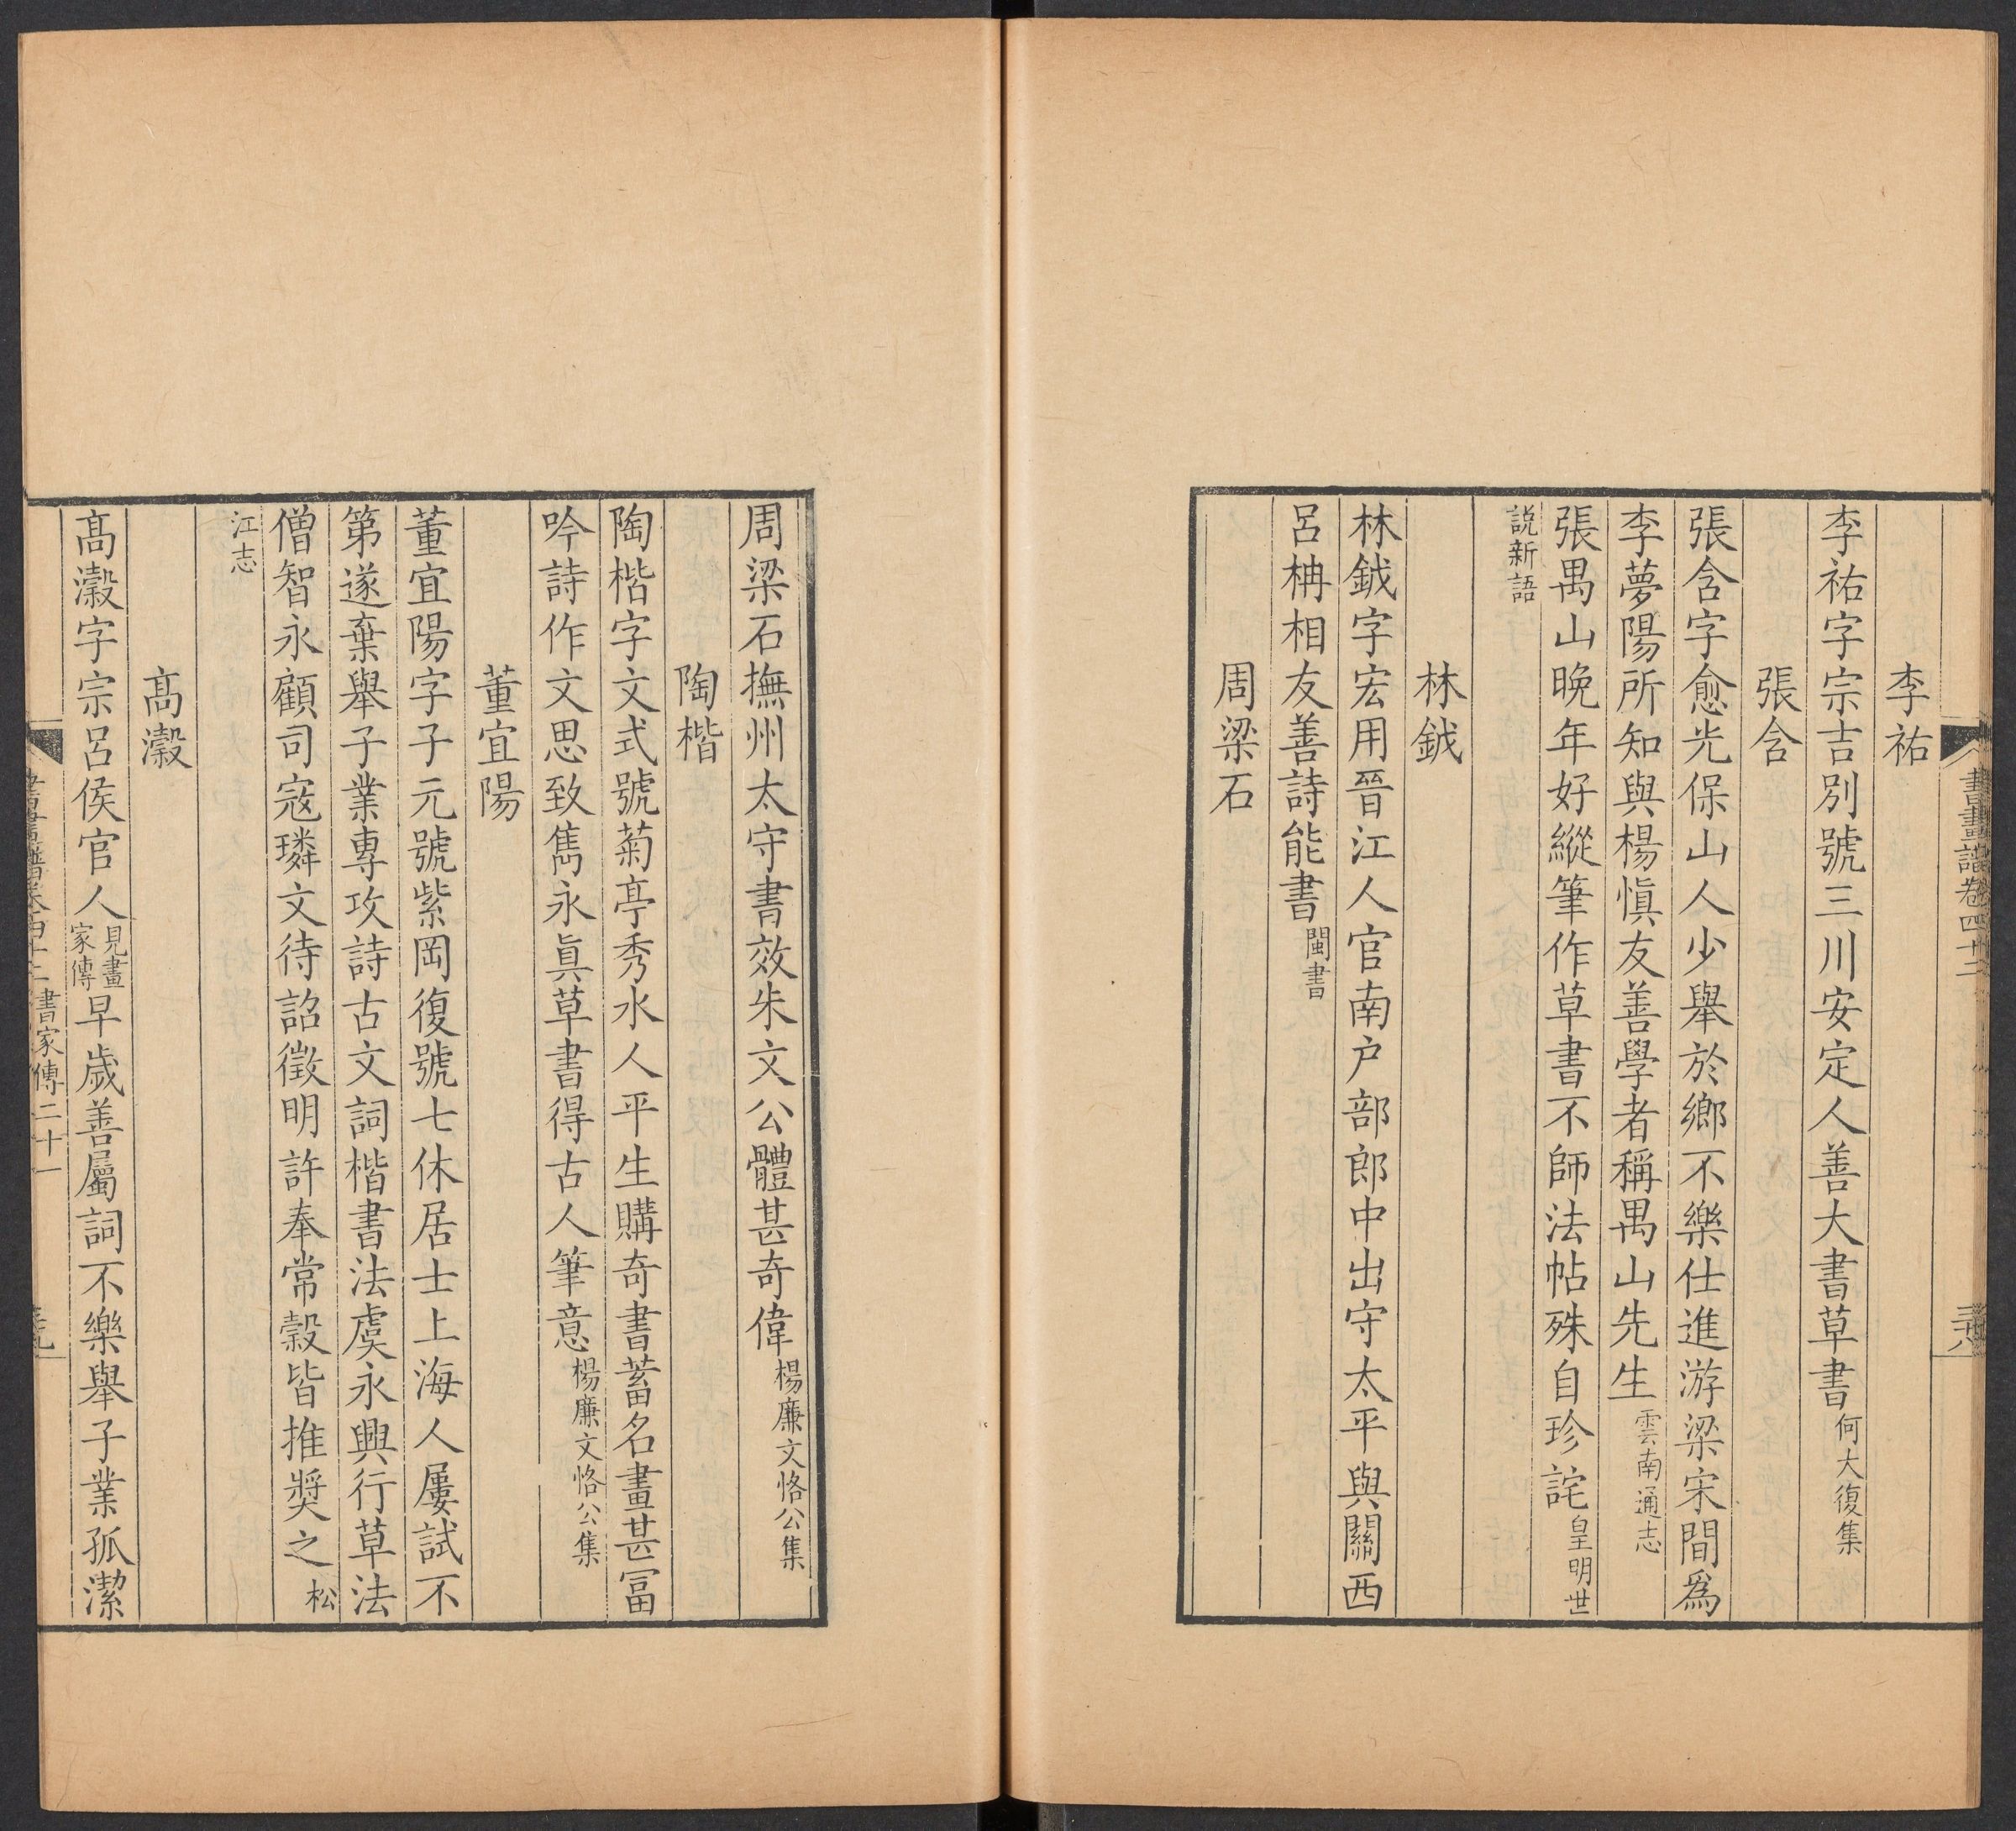 書畫譜卷四十二
李祐
李祐字宗吉別號三川安定人善大書草書何大復集
張含
張含字愈光保山人少舉於鄉不樂仕進游梁宋間爲
李夢陽所知與楊慎友善學者稱禺山先生雲南通志
張禺山晚年好縱筆作草書不師法帖殊自珍詫皇明世
說新語
林鉞
林鉞字宏用晉江人官南户部郎中出守太平與關西
呂柟相友善詩能書閩書
周梁石
周梁石撫州太守書效朱文公體甚奇偉楊廉文恪公集
陶楷
陶楷字文式號菊亭秀水人平生購奇書蓄名畫甚冨
吟詩作文思致雋永眞草書得古人筆意楊廉文恪公集
董宜陽
董宜陽字子元號紫岡復號七休居士上海人屢試不
第遂棄舉子業專攻詩古文詞楷書法虞永興行草法
僧智永顧司寇璘文待詔徵明許奉常穀皆推奬之松
江志
髙瀫
髙瀫字宗呂侯官人見畫家傳早歲善屬詞不樂舉子業孤潔
書家傳二十一